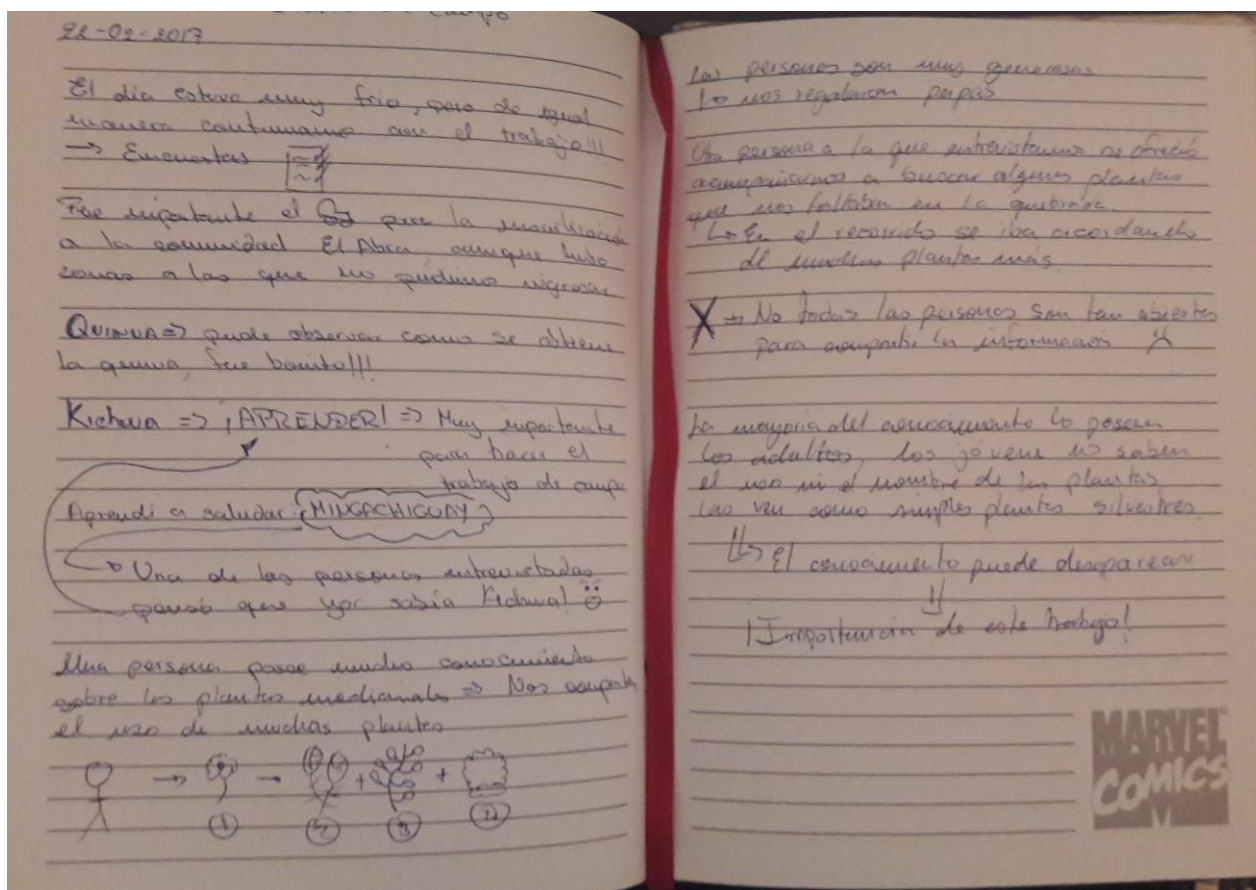 de campo
22-02-2017
El día estuvo muy frio, pero de igual
manera continuamos con el trabajo!!!
→ Encuestas
Fue importante el para la movilización
a la comunidad El Abra aunque hubo
zonas a las que no pudimos ingresar
QUINUA => pude observar como se obtiene
la quinua, fue bonito!!!
Kichwa => ¡APRENDER! => Muy importante
para hacer el
trabajo de campo
Aprendi a saludar: MINGACHIGUAY
Una de las personas entrevistadas
pensó que yo sabía Kichwa!
Una persona posee mucho conocimiento
sobre las plantas medicinales => Nos comparte
el uso de muchas plantas
→ → + +
1 2 3
Las personas son muy generosas
↳ nos regalaron papas
Otra persona a la que entrevistamos se ofreció
acompañarnos a buscar algunas plantas
que nos faltaban en la quebrada.
↳ En el recorrido se iba acordando
de muchas plantas más
X → No todas las personas son tan abiertas
para compartir la información
La mayoría del conocimiento lo poseen
los adultos, los jóvenes no saben
el uso ni el nombre de las plantas
las ven como simples plantas silvestres
↳ El conocimiento puede desaparecer
⇓
¡Importancia de este trabajo!
MARVEL
COMICS